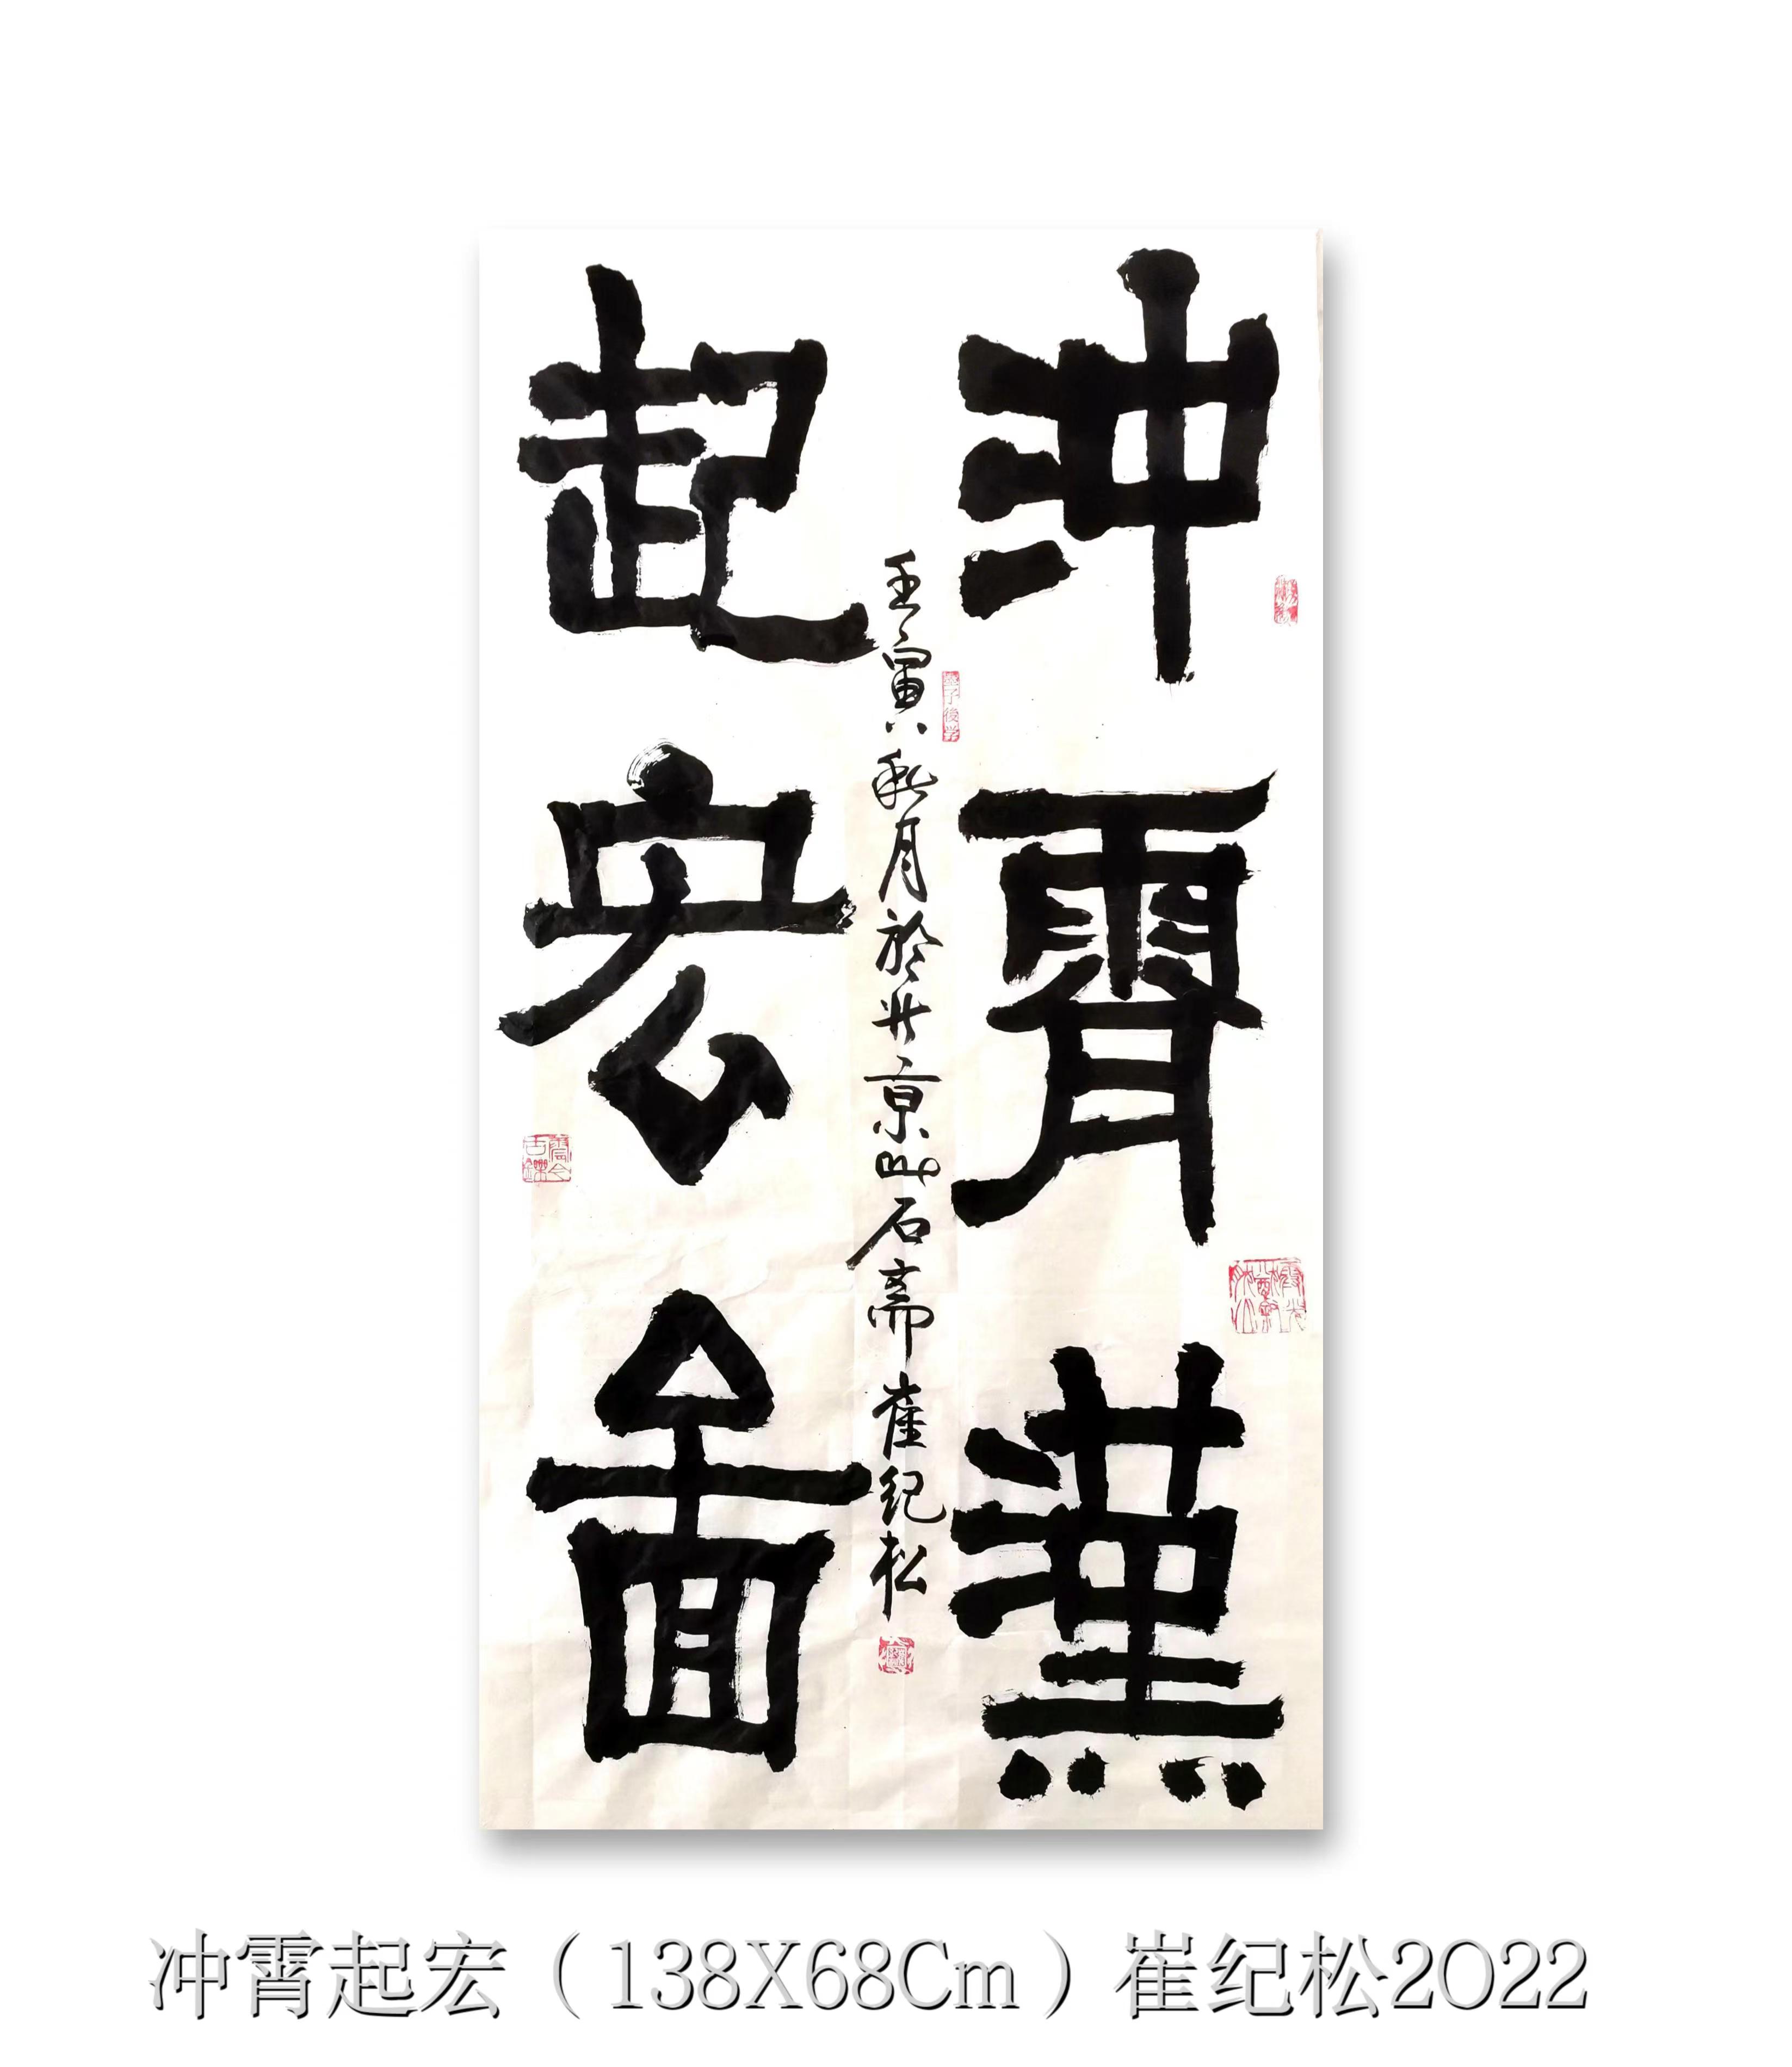 冲霄漢
起宏圖
壬寅秋月於北京山石斋崔纪松
冲霄起宏（138X68Cm）崔纪松2022